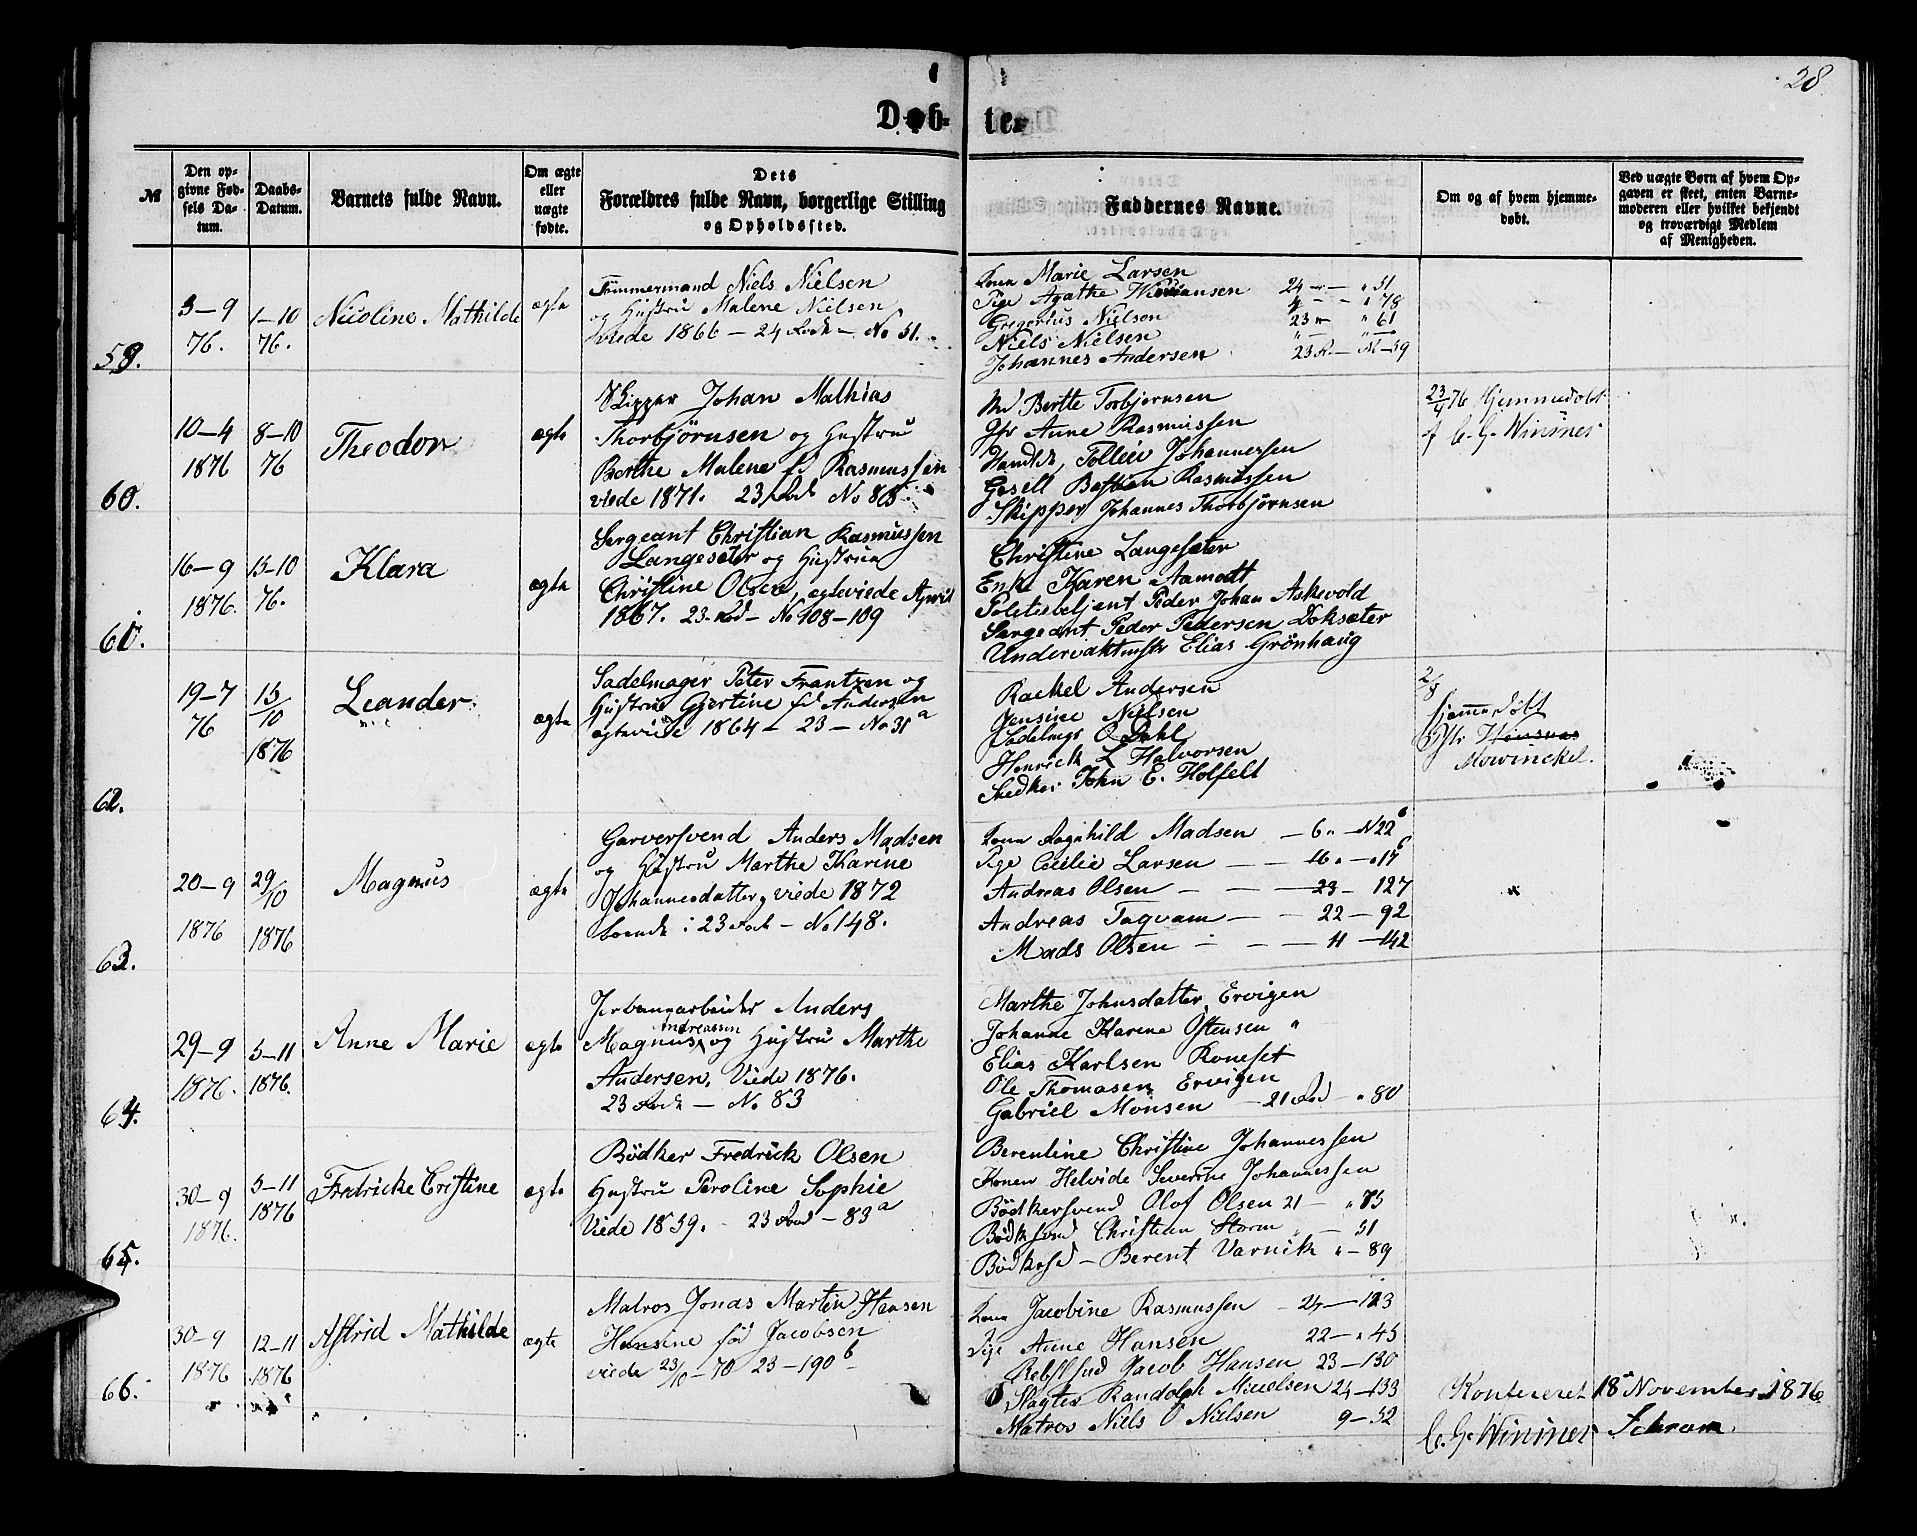 28
Døbte.
№
Den opgivne Fødsels Datum.
Daabs-Datum.
Barnets fulde Navn.
Om ægte eller uægte fødte.
Dets Forældres fulde Navn, borgerlige Stilling og Opholdssted.
Faddernes Navne.
Om og af hvem hjemmedøbt.
Ved uægte Børn af hvem Opgaven er skeet, enten Barnemoderen eller hvilket bekjendt og troværdigt Medlem af Menigheden.
59.
3-9
76.
1-10
76.
Nicoline Mathilde
ægte
Tømmermand Niels Nielsen
og Hustru Malene Nielsen
Viede 1866 - 24 Rode - No 51.
Kone Marie Larsen 24 - " 51
Pige Agathe - " 78
Gregerius Nielsen 23 " 61
Niels Nielsen
Johannes Andersen 23 R - N - 59
60.
10-4
1876
8-10
76
Theodor
ægte
Skipper Johan Mathias
Thorbjörnsen og Hustru
Berthe Malene fd Rasmussen
viede 1871. 23 Rode No 88
Md Bertte Torbjørnsen
Jfr Anne Rasmussen
Handlsb. Tollew Johannessen
Gesell Bastian Rasmussen
Skipper Johannes Thorbjørnsen
23/4 76 Hjemmedøbt
af C. G. Winines
61.
16-9
1876.
15-10
76.
Klara
ægte
Sergeant Christian Rasmussen
Langesæter og Hustrue
Christine Olsen, ægteviede April
1867. 23 Rod - No 108-109
Christine Langesæter
Enke Karen Aamodt
Politiebetjent Peder Johan Askevold
Sergeant Peder Pedersen Doksæter
Undervaktmstr Elias Grönhaug
62.
19-7
76
15/10
1876
Leander
ægte
Sadelmager Peter Frantzen og
Hustrue Gjertine fd Andersen
ægteviede 1864 - 23 - No 31a
Rachel Andersen
Jensine Nielsen
Sadelmgs O Dahl
Henrick L Halvorsen
Snedker John E. Holfelt
2/8
hjemmedøbt
Mowinckel.
63.
20-9
1876
29/10
1876
Magnus
ægte
Garversvend Anders Madsen
og Hustru Marthe Karine
Johannesdatter, viede 1872
boende i 23 Rode - No 148.
Kone Ragnhild Madsen - 6 " - N 22 b
Pige Cecilie Larsen - - 16 " - " 17 b
Andreas Olsen - - 23 - 127
Andreas Taqvam - - 22 - 92
Mads Olsen - - - 11 - 142
64.
29-9
1876.
5-11
1876.
Anne Marie
ægte
Jernbanearbeider Anders
Andreassen
Magnus og Hustru Marthe
Andersen, Viede 1876.
23 Rode - No 83
Marthe Johnsdatter Ervigen
Johanne Karine Østensen "
Elias Karlsen Roneset
Ole Thomasen Ervigen
Gabriel Monsen - 21 Rod - " 80
65.
30-9
1876.
5-11
1876
Fredricke Cristine
ægte
Bödker Fredrick Olsen
Hustru Peroline Sophie
Viede 1859. - 23 Rod - 83a
Berentine Christine Johannessen
Konen Helvide Severine Johannessen
Bödkersvend Olof Olsen 21 - " 75
Bödksvnd Christian Storm " - 51
Bödkersd - Berent Varnik " - 89
66.
30-9
1876
12-11
1876
Astrid Mathilde
ægte
Matros Jonas Martin Hansen
Hansine fød Jacobsen
viede 23/10 - 70 23 - 190 b
Kone Jacobine Rasmussen - 24 - 123
Pige Anne Hansen 22 - " 45
Rebslsvd Jacob Hansen 23 - 130
Slagter Randolph Nicolsen 24 - 133
Matros Niels O Nielsen 9 - 52
Konfereret 18 November 1876
C. G. Winines Schram.